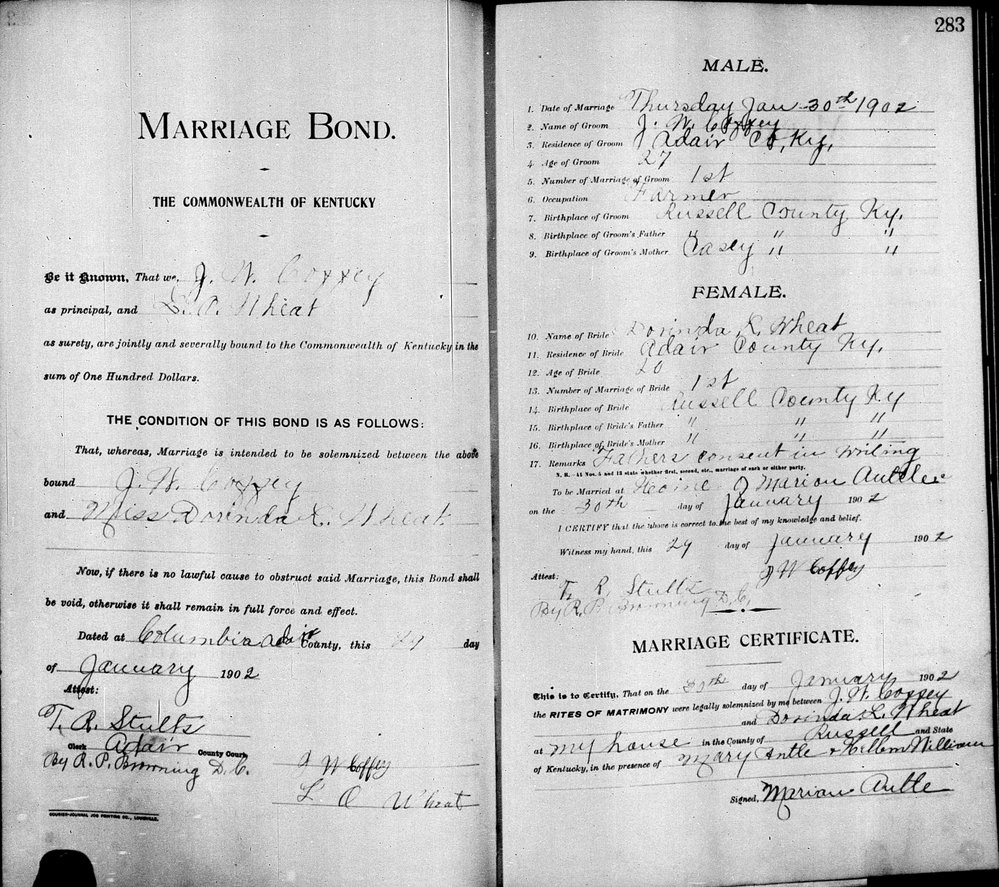 MARRIAGE BOND.
THE COMMONWEALTH OF KENTUCKY
Be it Known, That we, J. W. Coffey
as principal, and L. O. Wheat
as surety, are jointly and severally bound to the Commonwealth of Kentucky in the
sum of One Hundred Dollars.
THE CONDITION OF THIS BOND IS AS FOLLOWS:
That, whereas, Marriage is intended to be solemnized between the above
bound J. W. Coffey
and Miss Dorinda L. Wheat
Now, if there is no lawful cause to obstruct said Marriage, this Bond shall
be void, otherwise it shall remain in full force and effect.
Dated at Columbia Adair County, this day
of January 1902
Attest:
T. R. Stults
Clerk Adair County Court
By R. P. Browning D. C.
J W Coffey
L O Wheat
COURIER-JOURNAL JOB PRINTING CO., LOUISVILLE.
283
MALE.
1. Date of Marriage Thursday Jan 30th 1902
2. Name of Groom J. W. Coffey
3. Residence of Groom Adair Co, Ky,
4. Age of Groom 27
5. Number of Marriage of Groom 1st
6. Occupation Farmer
7. Birthplace of Groom Russell County Ky.
8. Birthplace of Groom's Father " " "
9. Birthplace of Groom's Mother Casey " "
FEMALE.
10. Name of Bride Dorinda L. Wheat
11. Residence of Bride Adair County Ky.
12. Age of Bride 20
13. Number of Marriage of Bride 1st
14. Birthplace of Bride Russell County Ky
15. Birthplace of Bride's Father " " "
16. Birthplace of Bride's Mother " " "
17. Remarks Fathers consent in writing
N. B.—At Nos. 5 and 13 state whether first, second, etc., marriage of each or either party.
To be Married at Home of Marion Antle
on the 30th day of January 1902
I CERTIFY that the above is correct to the best of my knowledge and belief.
Witness my hand, this 29 day of January 1902
J W Coffey
Attest:
T. R. Stults
By R. P. Browning D. C.
MARRIAGE CERTIFICATE.
This is to Certify, That on the 30th day of January 1902
the RITES OF MATRIMONY were legally solemnized by me between J. W. Coffey
and Dorinda L. Wheat
at my house in the County of Russell and State
of Kentucky, in the presence of Mary Antle &
Signed, Marion Antle